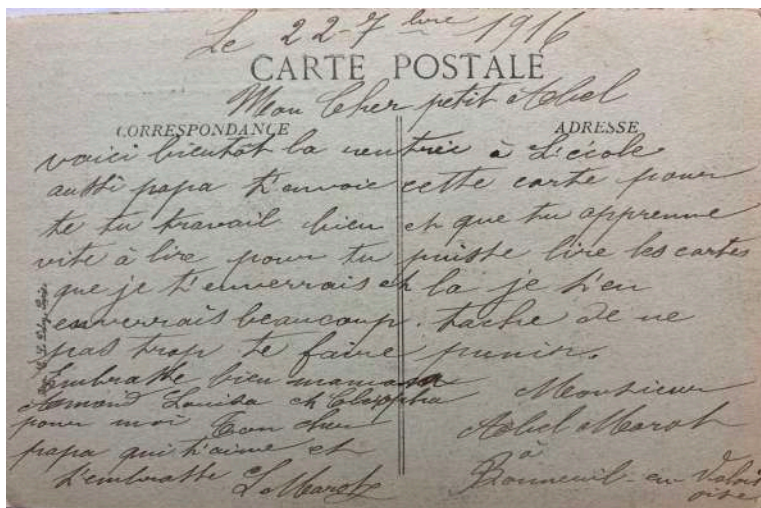 Le 22-7bre 1916
CARTE POSTALE
Mon Cher petit Abel
CORRESPONDANCE
ADRESSE
voici bientôt la rentrée à L'école
aussi papa t'envoie cette carte pour
te tu travail bien et que tu apprenne
vite à lire pour tu puisse lire les cartes
que je t'enverrais et la je t'en
enverrais beaucoup. tache de ne
pas trop te faire punir.
Embrasse bien maman
Armand Louisa et
pour moi Ton cher
papa qui t'aime et
t'embrasse L Marot
Monsieur
Abel Marot
à
Bonneuil-en-Valois
oise